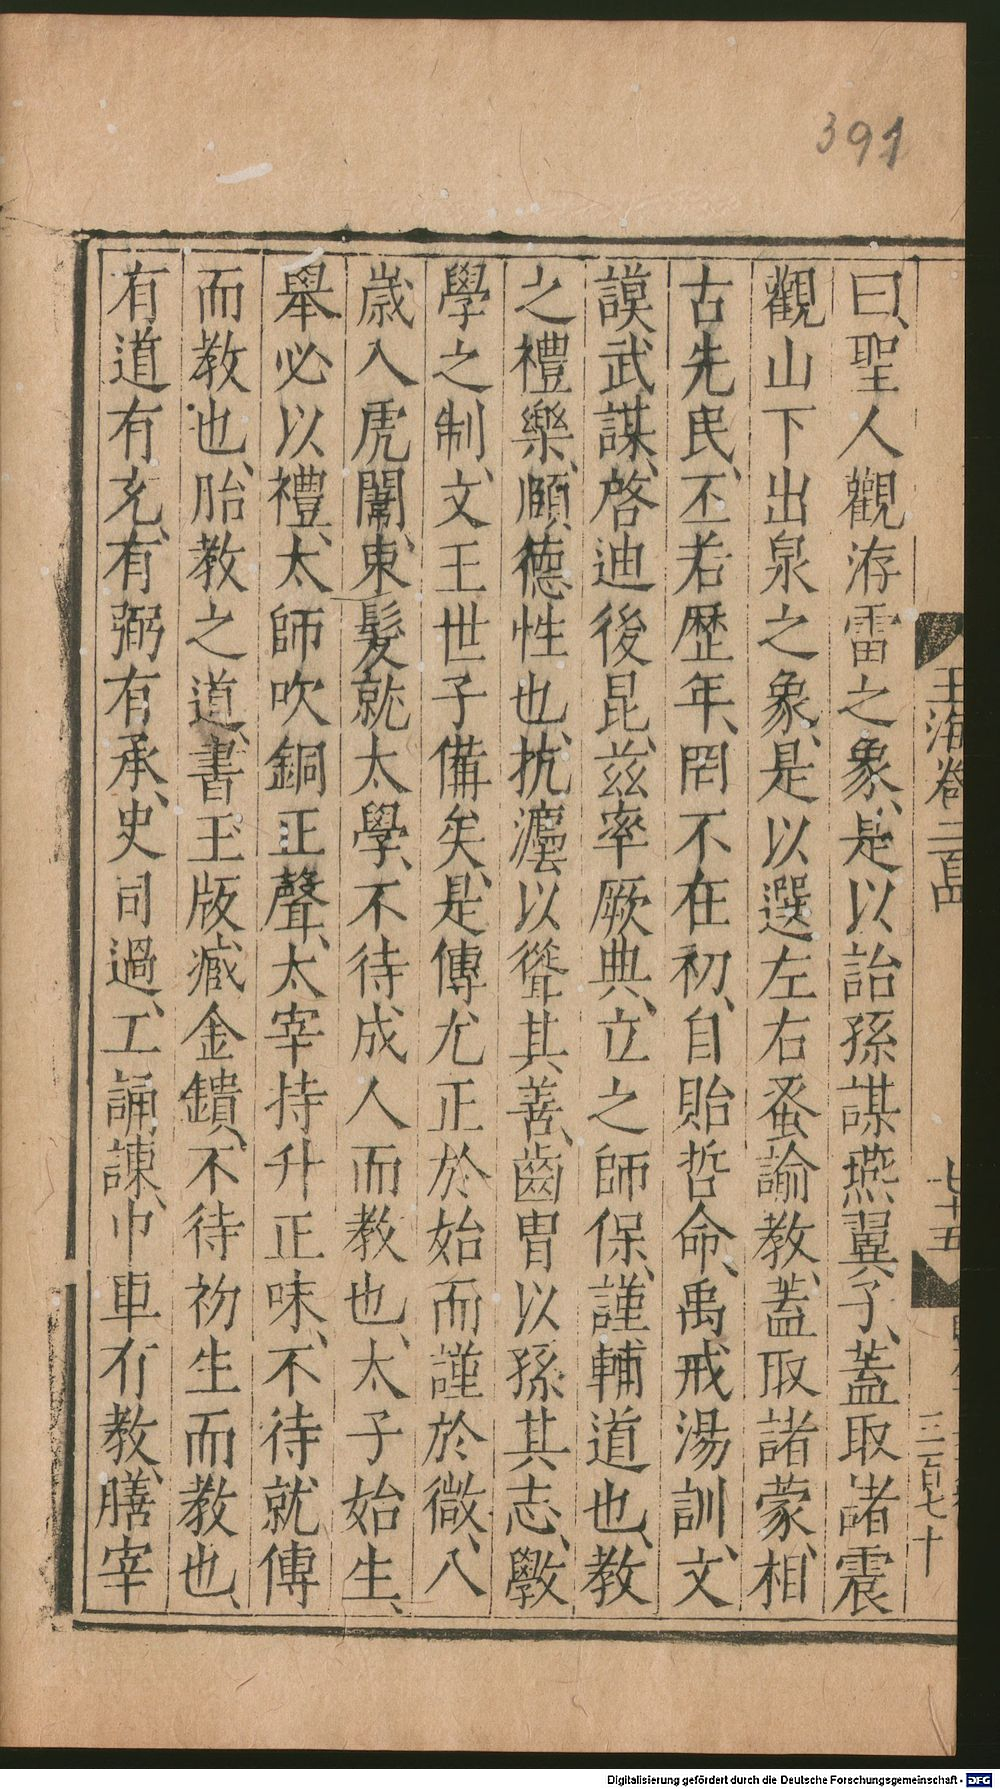 391
玉海卷二百四
七十五
三百七十
曰、聖人觀洊雷之象、是以詒孫謀燕翼子、蓋取諸震
觀山下出泉之象、是以選左右蚤諭教、蓋取諸蒙、相
古先民、丕若歷年、罔不在初、自貽哲命、禹戒湯訓、文
謨武謀、啓迪後昆、茲率厥典、立之師保、謹輔道也、教
之禮樂、頤德性也、抗灋以從其善、齒冑以孫其志、斆
學之制、文王世子備矣、是傳尤正於始而謹於微、八
歲入虎闈、束髮就太學、不待成人而教也、太子始生、
舉必以禮、太師吹銅正聲、太宰持升正味、不待就傅
而教也、胎教之道、書玉版臧金鐀、不待初生而教也、
有道有充、有弼有承、史司過、工誦諫、巾車有教、膳宰
Digitalisierung gefördert durch die Deutsche Forschungsgemeinschaft - DFG